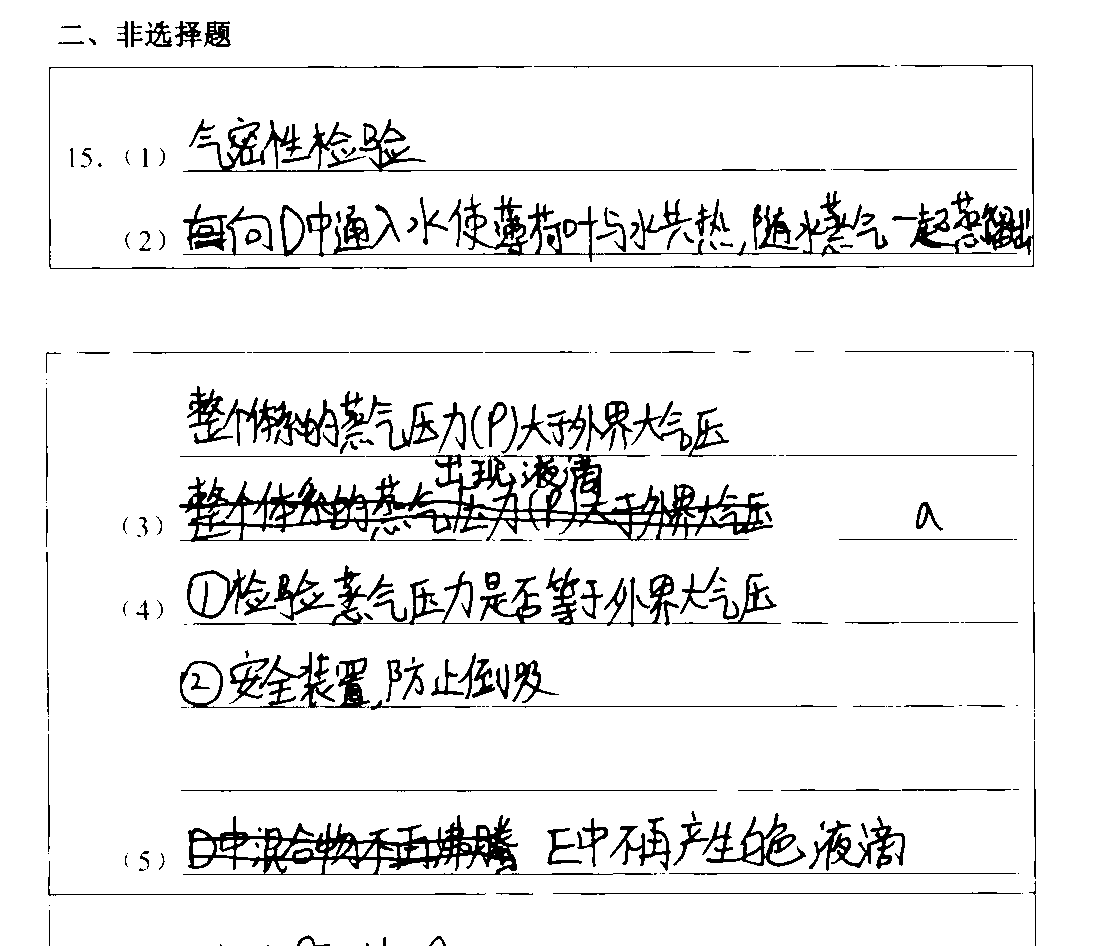 二、非选择题
15.（1）气密性检验
（2）向D中通入水使薄荷叶与水共热,随水蒸气一起蒸馏出
整个体系的蒸气压力(P)大于外界大气压
出现液滴
（3）整个体系的蒸气压力(P)大于外界大气压 a
（4）①检验蒸气压力是否等于外界大气压
②安全装置,防止倒吸
（5）D中混合物不再沸腾 E中不再产生白色液滴